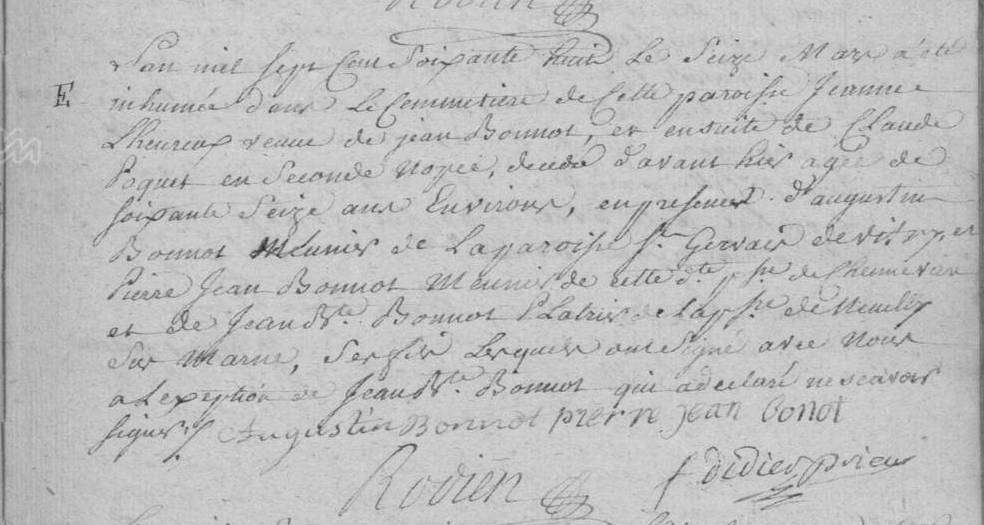 Rovien
L'an mil sept Cent Soixante huit Le Seize Mars a été
E
inhumée dans Le Cemmetiere de Cette paroisse Jeanne
Lheureux veuve de jean Bonnot, et ensuite de Claude
Poquet en Seconde Nopce, decedé d'avant hier agée de
soixante Seize ans Environs, en presence d'augustin
Bonnot Meunier de La paroisse St Gervais de vitry, et
Pierre Jean Bonnot Meunier de cette dte psse de Chennevier
et de Jean Bte Bonnot Platrier de La psse de Neuilly
Sur Marne, Ses fils Lesquels ont Signé avec Nous
a Lexeption de Jean Bte Bonnot qui a declaré ne scavoir
signer ./. Augustin Bonnot pierre jean bonot
Rovien f didier prieur